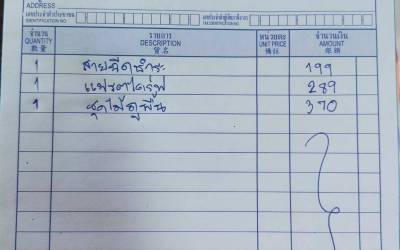 ADDRESS
เลขประจำตัวประชาชน
IDENTIFICATION NO.
เลขประจำตัวผู้เสียภาษีอากร
TAX IDENTIFICATION NO.
จำนวน รายการ หน่วยละ จำนวนเงิน
QUANTITY DESCRIPTION UNIT PRICE AMOUNT
數量 品名 價銀
1 สายฉีดชำระ 199
1 289
1 ชุดไม้ถูพื้น 370